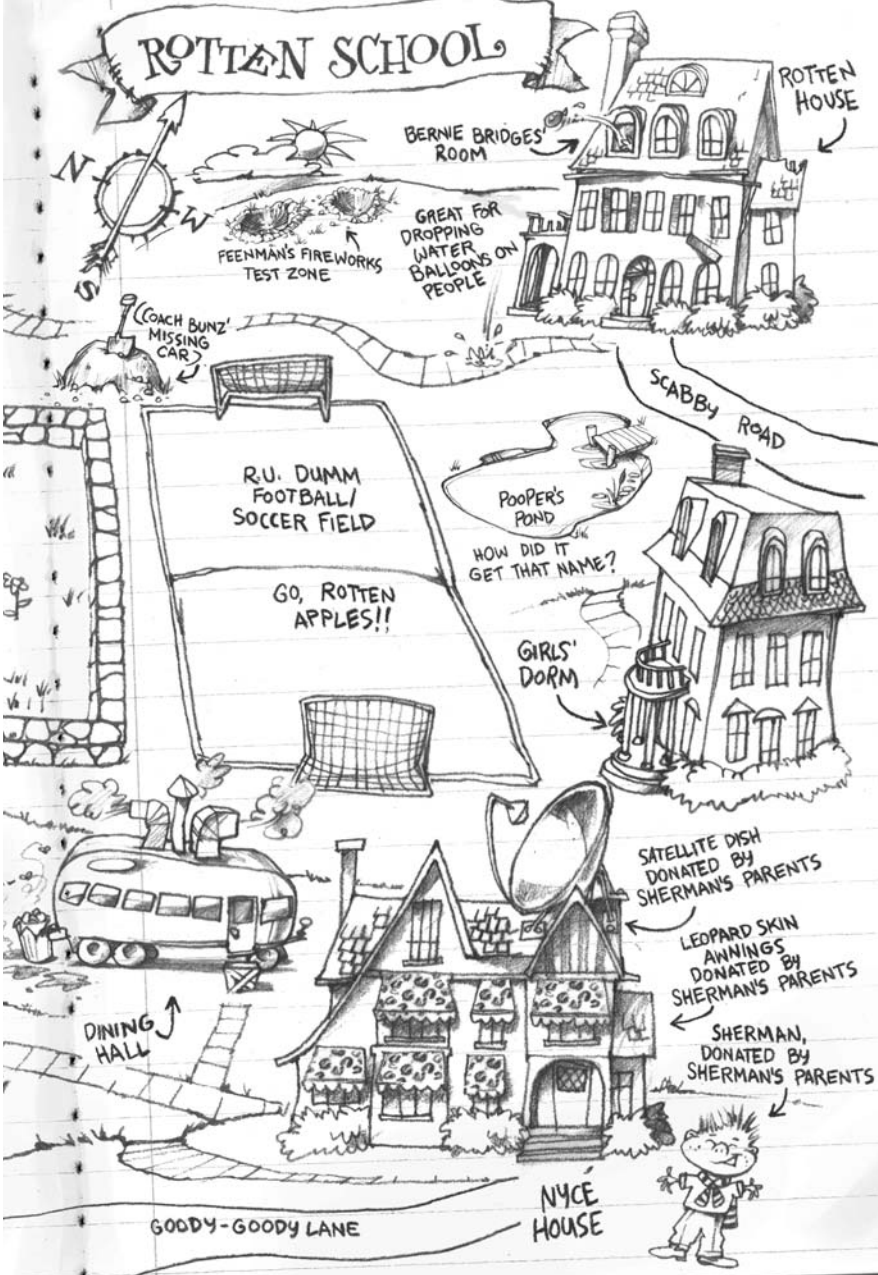 ROTTEN SCHOOL
ROTTEN
HOUSE
BERNIE BRIDGES'
ROOM
N
W
S
FEENMAN'S FIREWORKS
TEST ZONE
GREAT FOR
DROPPING
WATER
BALLOONS ON
PEOPLE
COACH BUNZ'
MISSING
CAR
SCABBY ROAD
R.U. DUMM
FOOTBALL/
SOCCER FIELD
POOPER'S
POND
HOW DID IT
GET THAT NAME?
GO, ROTTEN
APPLES!!
GIRLS'
DORM
SATELLITE DISH
DONATED BY
SHERMAN'S PARENTS
LEOPARD SKIN
AWNINGS
DONATED BY
SHERMAN'S PARENTS
DINING
HALL
SHERMAN,
DONATED BY
SHERMAN'S PARENTS
NYCE
HOUSE
GOODY-GOODY LANE